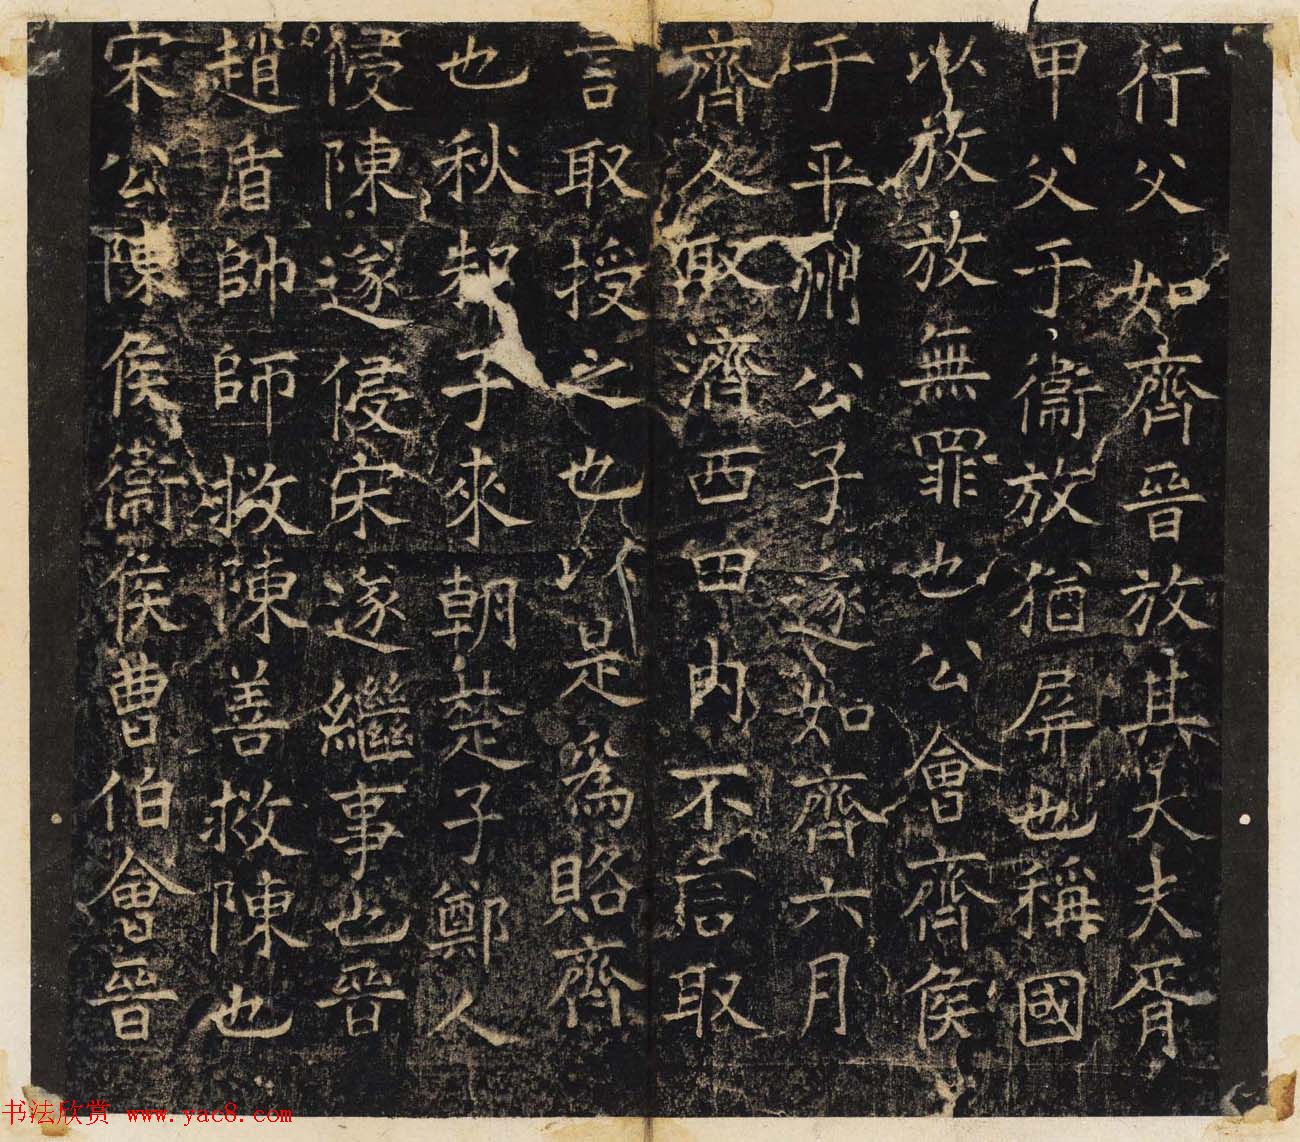 行父如齊晉放其大夫胥
甲父于衞放猶屏也稱國
以放放無罪也公會齊侯
于平州公子遂如齊六月
齊人取濟西田內不言取
言取授之也以是爲賂齊
也秋邾子來朝楚子鄭人
侵陳遂侵宋遂繼事也晉
趙盾帥師救陳善救陳也
宋公陳侯衞侯曹伯會晉
书法欣赏 www.yac8.com